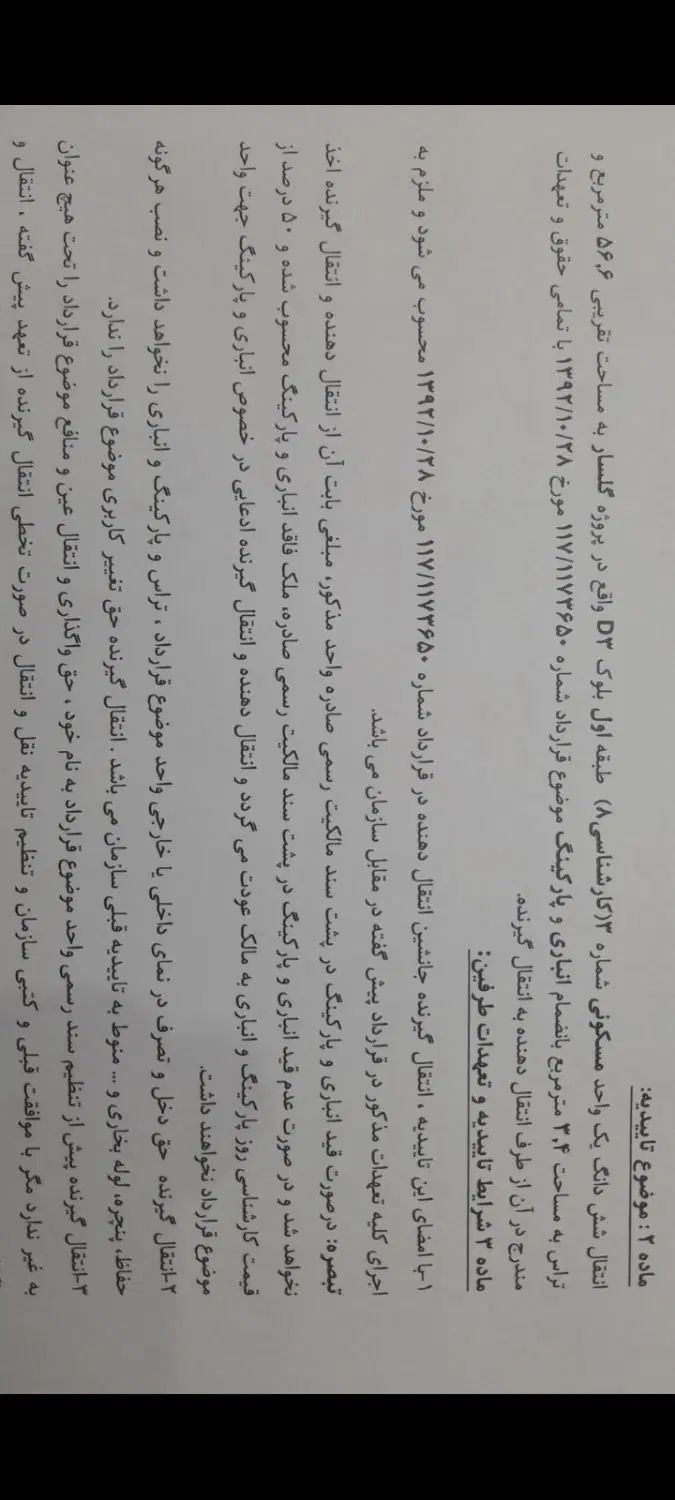 ماده ۲ : موضوع تاییدیه:
انتقال شش دانگ یک واحد مسکونی شماره ۳(کارشناسی۸) طبقه اول بلوک D۳ واقع در پروژه گلسار به مساحت تقریبی ۵۶٫۶ مترمربع و
تراس به مساحت ۳٫۴ مترمربع بانضمام انباری و پارکینگ موضوع قرارداد شماره ۱۱۷/۱۱۷۳۶۵۰ مورخ ۱۳۹۲/۱۰/۲۸ با تمامی حقوق و تعهدات
مندرج در آن از طرف انتقال دهنده به انتقال گیرنده.
ماده ۳ شرایط تاییدیه و تعهدات طرفین:
۱-با امضای این تاییدیه ، انتقال گیرنده جانشین انتقال دهنده در قرارداد شماره ۱۱۷/۱۱۷۳۶۵۰ مورخ ۱۳۹۲/۱۰/۲۸ محسوب می شود و ملزم به
اجرای کلیه تعهدات مذکور در قرارداد پیش گفته در مقابل سازمان می باشد.
تبصره: درصورت قید انباری و پارکینگ در پشت سند مالکیت رسمی صادره واحد مذکور، مبلغی بابت آن از انتقال دهنده و انتقال گیرنده اخذ
نخواهد شد و در صورت عدم قید انباری و پارکینگ در پشت سند مالکیت رسمی صادره، ملک فاقد انباری و پارکینگ محسوب شده و ۵۰ درصد از
قیمت کارشناسی روز پارکینگ و انباری به مالک عودت می گردد و انتقال دهنده و انتقال گیرنده ادعایی در خصوص انباری و پارکینگ جهت واحد
موضوع قرارداد نخواهند داشت.
۲-انتقال گیرنده حق دخل و تصرف در نمای داخلی یا خارجی واحد موضوع قرارداد ، تراس و پارکینگ و انباری را نخواهد داشت و نصب هر گونه
حفاظ، پنجره، لوله بخاری و ... منوط به تاییدیه قبلی سازمان می باشد . انتقال گیرنده حق تغییر کاربری موضوع قرارداد را ندارد.
۳-انتقال گیرنده پیش از تنظیم سند رسمی واحد موضوع قرارداد به نام خود ، حق واگذاری و انتقال عین و منافع موضوع قرارداد را تحت هیچ عنوان
به غیر ندارد مگر با موافقت قبلی و کتبی سازمان و تنظیم تاییدیه نقل و انتقال در صورت تخطی انتقال گیرنده از تعهد پیش گفته ، انتقال و